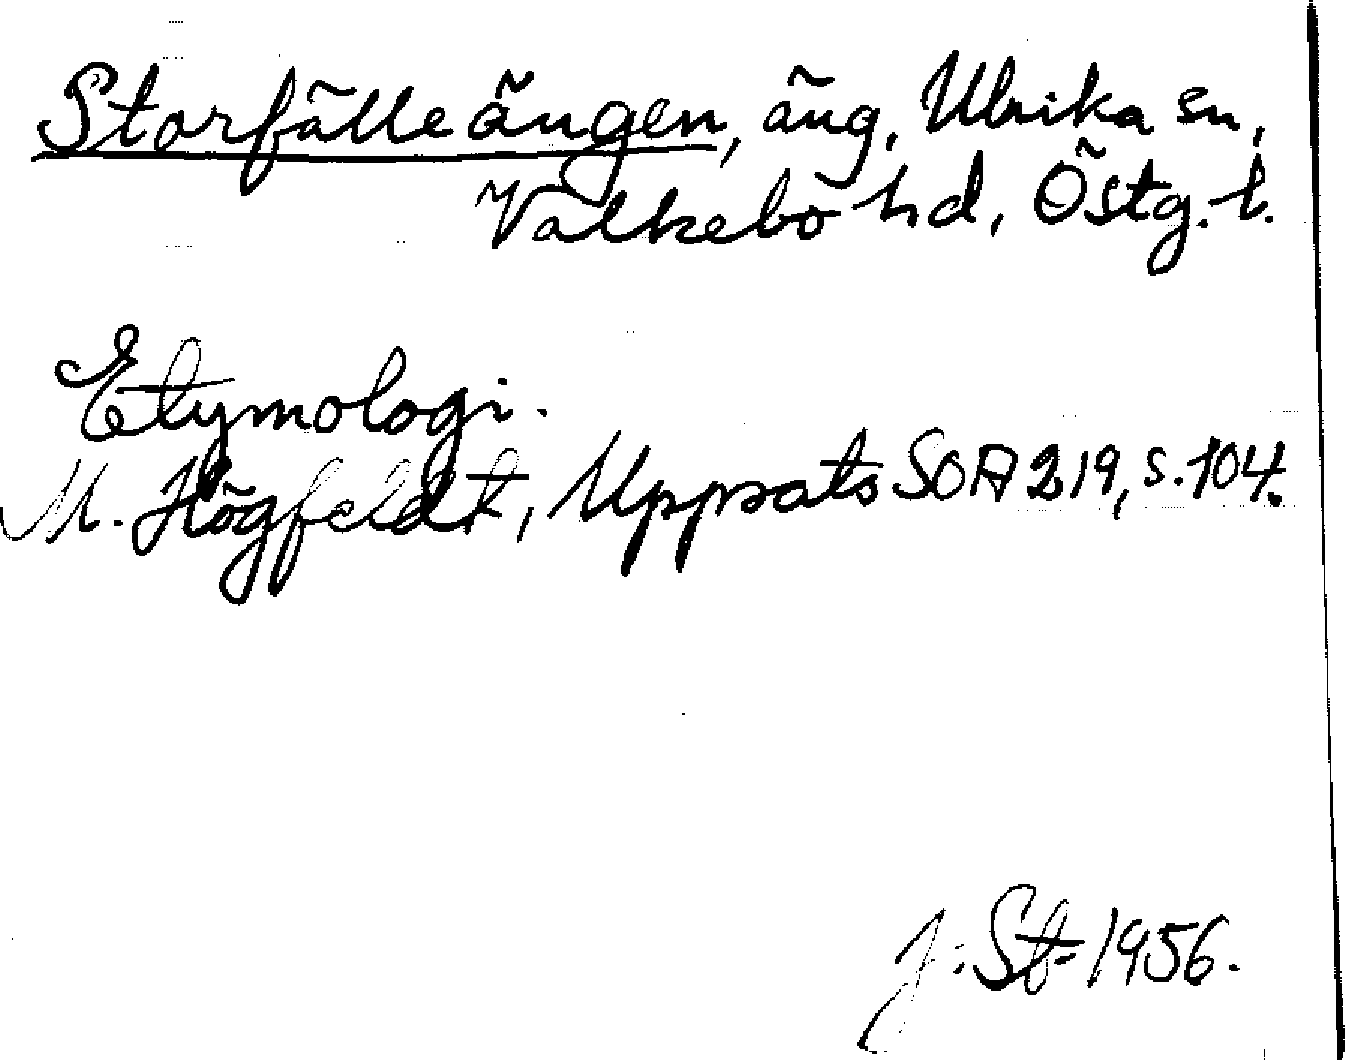 Storfälleängen, äng, Ulrika sn,
Valkebo hd, Östg. l.
Etymologi.
M. Högfeldt, Uppsats SOA 219, s. 104.
J: St- 1956.